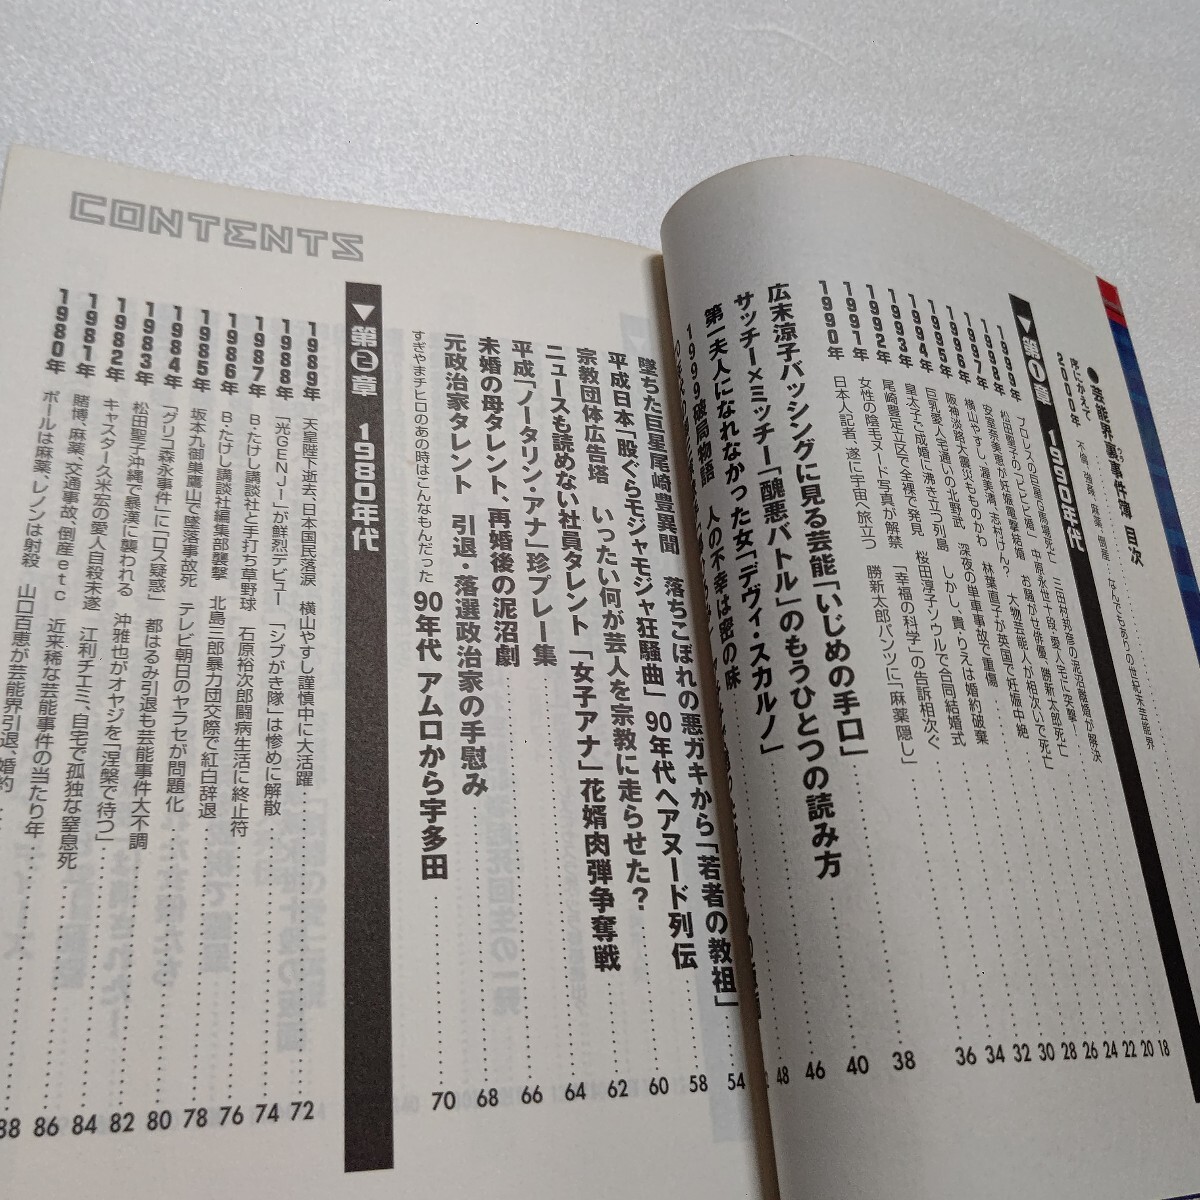 ● 芸能界裏事件簿 目次
序にかえて
2000年 不倫、強姦、麻薬、倒産…なんでもありの世紀末芸能界
▼第1章 1990年代
1999年 プロレスの巨星G馬場死亡 三田村邦彦の泥沼離婚が解決 18
1998年 松田聖子の「ビビビ婚」 中原永世十段・愛人宅に突撃! 20
1997年 安室奈美恵が妊娠電撃結婚 お騒がせ俳優、勝新太郎死亡 22
1996年 横山やすし、渥美清、志村けん? 大物芸能人が相次いで死亡 24
1995年 阪神淡路大震災もものかわ 林葉直子が英国で妊娠中絶 26
1994年 巨乳愛人宅通いの北野武 深夜の単車事故で重傷 28
1993年 皇太子ご成婚に沸き立つ列島 しかし、貴・りえは婚約破棄 30
1992年 尾崎豊足立区で全裸で発見 桜田淳子ソウルで合同結婚式 32
1991年 女性の陰毛ヌード写真が解禁 「幸福の科学」の告訴相次ぐ 34
1990年 日本人記者、遂に宇宙へ旅立つ 勝新太郎パンツに「麻薬隠し」 36
広末涼子バッシングに見る芸能「いじめの手口」 38
サッチー×ミッチー「醜悪バトル」のもうひとつの読み方 40
第一夫人になれなかった女「デヴィ・スカルノ」 46
1999破局物語 人の不幸は密の味 48
墜ちた巨星尾崎豊異聞 落ちこぼれの悪ガキから「若者の教祖」 54
平成日本「股ぐらモジャモジャ狂騒曲」 90年代ヘアヌード列伝 58
宗教団体広告塔 いったい何が芸人を宗教に走らせた? 60
ニュースも読めない社員タレント「女子アナ」花婿肉弾争奪戦 62
平成「ノータリン・アナ」珍プレー集 64
未婚の母タレント、再婚後の泥沼劇 66
元政治家タレント 引退・落選政治家の手慰み 68
すぎやまチヒロのあの時はこんなもんだった 90年代 アムロから宇多田 70
CONTENTS
▼第2章 1980年代
1989年 天皇陛下逝去、日本国民落涙 横山やすし謹慎中に大活躍 72
1988年 「光GENJI」が鮮烈デビュー 「シブがき隊」は惨めに解散 74
1987年 B・たけし講談社と手打ち草野球 石原裕次郎闘病生活に終止符 76
1986年 B・たけし講談社編集部襲撃 北島三郎暴力団交際で紅白辞退 78
1985年 坂本九御巣鷹山で墜落事故死 テレビ朝日のヤラセが問題化 80
1984年 「グリコ森永事件」に「ロス疑惑」 都はるみ引退も芸能事件大不調 82
1983年 松田聖子沖縄で暴漢に襲われる 沖雅也がオヤジを「涅槃で待つ」 84
1982年 キャスター久米宏の愛人自殺未遂 江利チエミ、自宅で孤独な窒息死 86
1981年 賭博、麻薬、交通事故、倒産etc 近来稀な芸能事件の当たり年 88
1980年 ポールは麻薬、レノンは射殺 山口百恵が芸能界引退、婚約